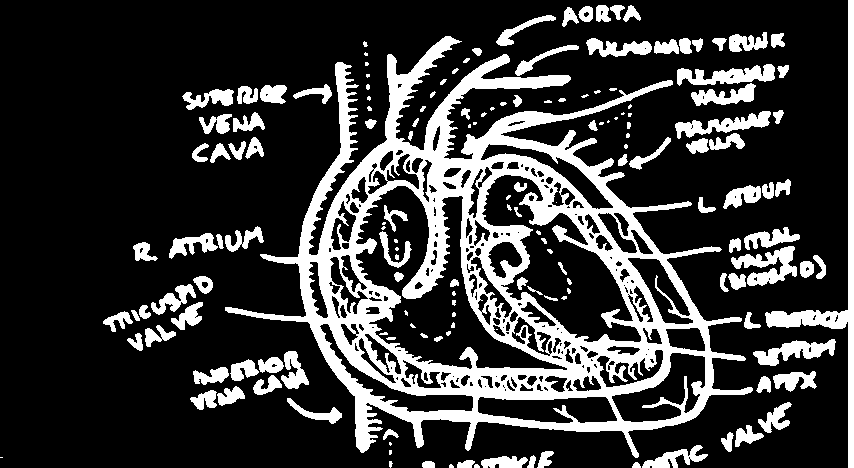 AORTA
PULMONARY TRUNK
PULMONARY
VALVE
SUPERIOR
VENA
CAVA
PULMONARY
VEINS
L ATRIUM
R. ATRIUM
MITRAL
VALVE
(BICUSPID)
TRICUSPID
VALVE
L VENTRICLE
SEPTUM
INFERIOR
VENA CAVA
APEX
R VENTRICLE
AORTIC VALVE